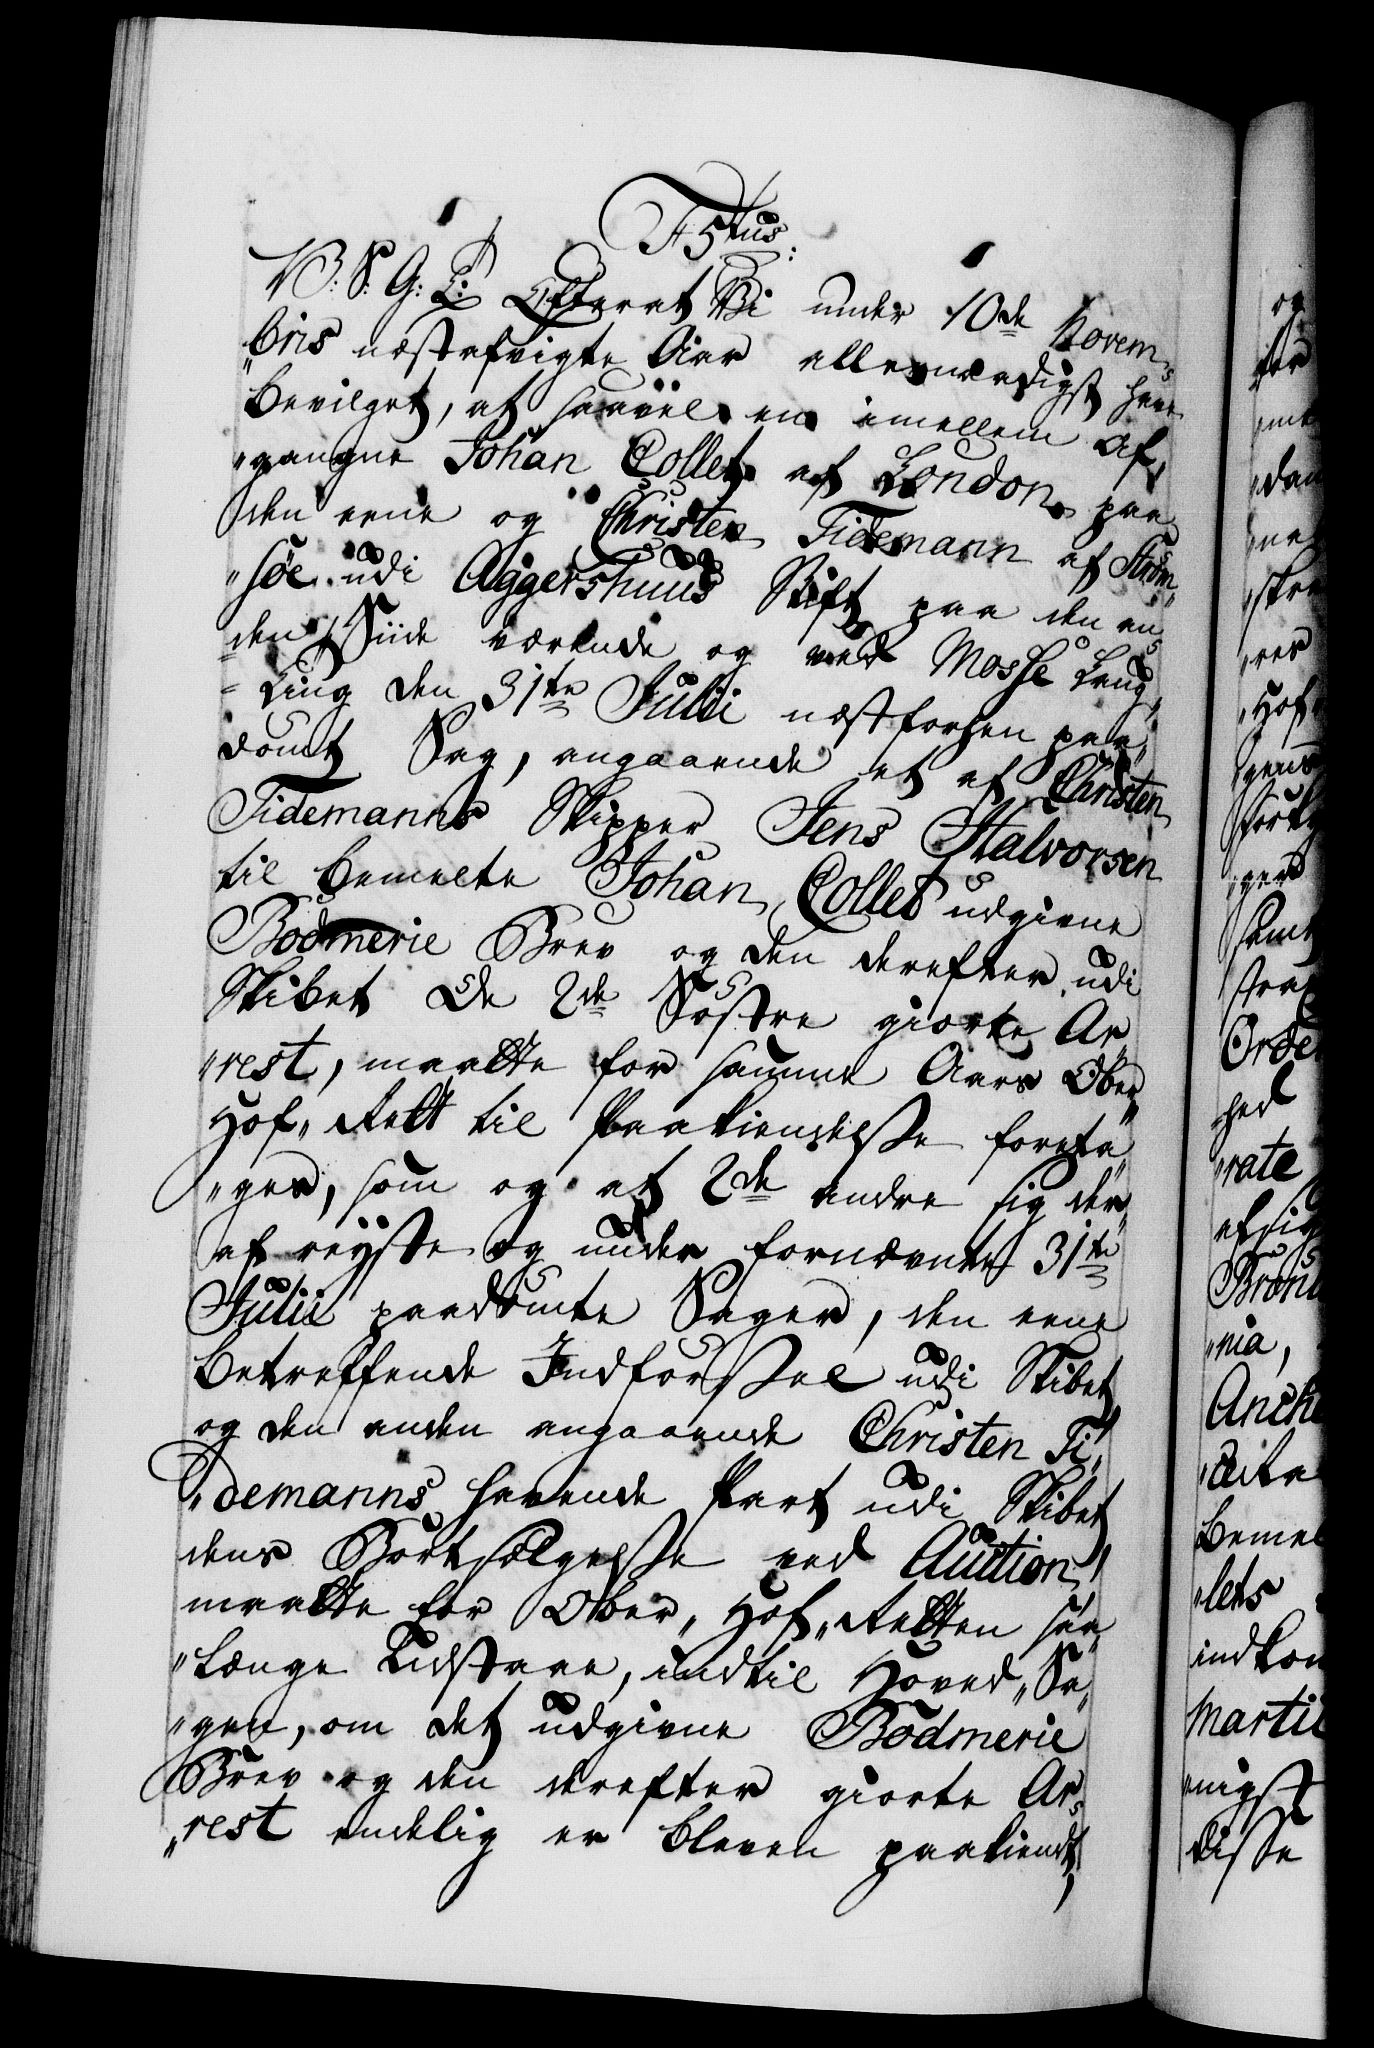 F 5tus:
V: S: G: L: Efterat Vi under 10de Novem„
„bris næstafvigte Aar allernaadigst have
bevilget, at saavel en imellem af„
„gangne Johan Collet af London paa
den eene og Christen Tidemann af Ströms„
„söe udi Aggershuus Stift paa den an„
„den Siide værende og ved Mosse Laug„
„ting den 31te Julii næstforhen paa„
dömt Sag, angaaende et af Christen
Tidemanns Skipper Jens Halvorsen
til bemelte Johan Collet udgivne
Bodmerie Brev og den derefter udi
Skibet De 2de Söstre giorte Ar„
„rest, maatte for samme Aars Ober„
Hof„Rett til Paakiendelsse foreta„
„ges, som og at 2de andre sig der„
af reyste og under fornævnte 31te
Julii paadömte Sager, den eene
betreffende Indförssel udi Skibet
og den anden angaaende Christen Ti„
„demanns havende Part udi Skibet
dens Bortsælgelsse ved Auction,
maatte for Ober„Hof„Retten saa„
„længe Udstaae, indtil Hoved„Sa„
„gen, om det udgivne Bodmerie
Brev og den derefter giorte Ar„
„rest endelig er bleven paakiendt,